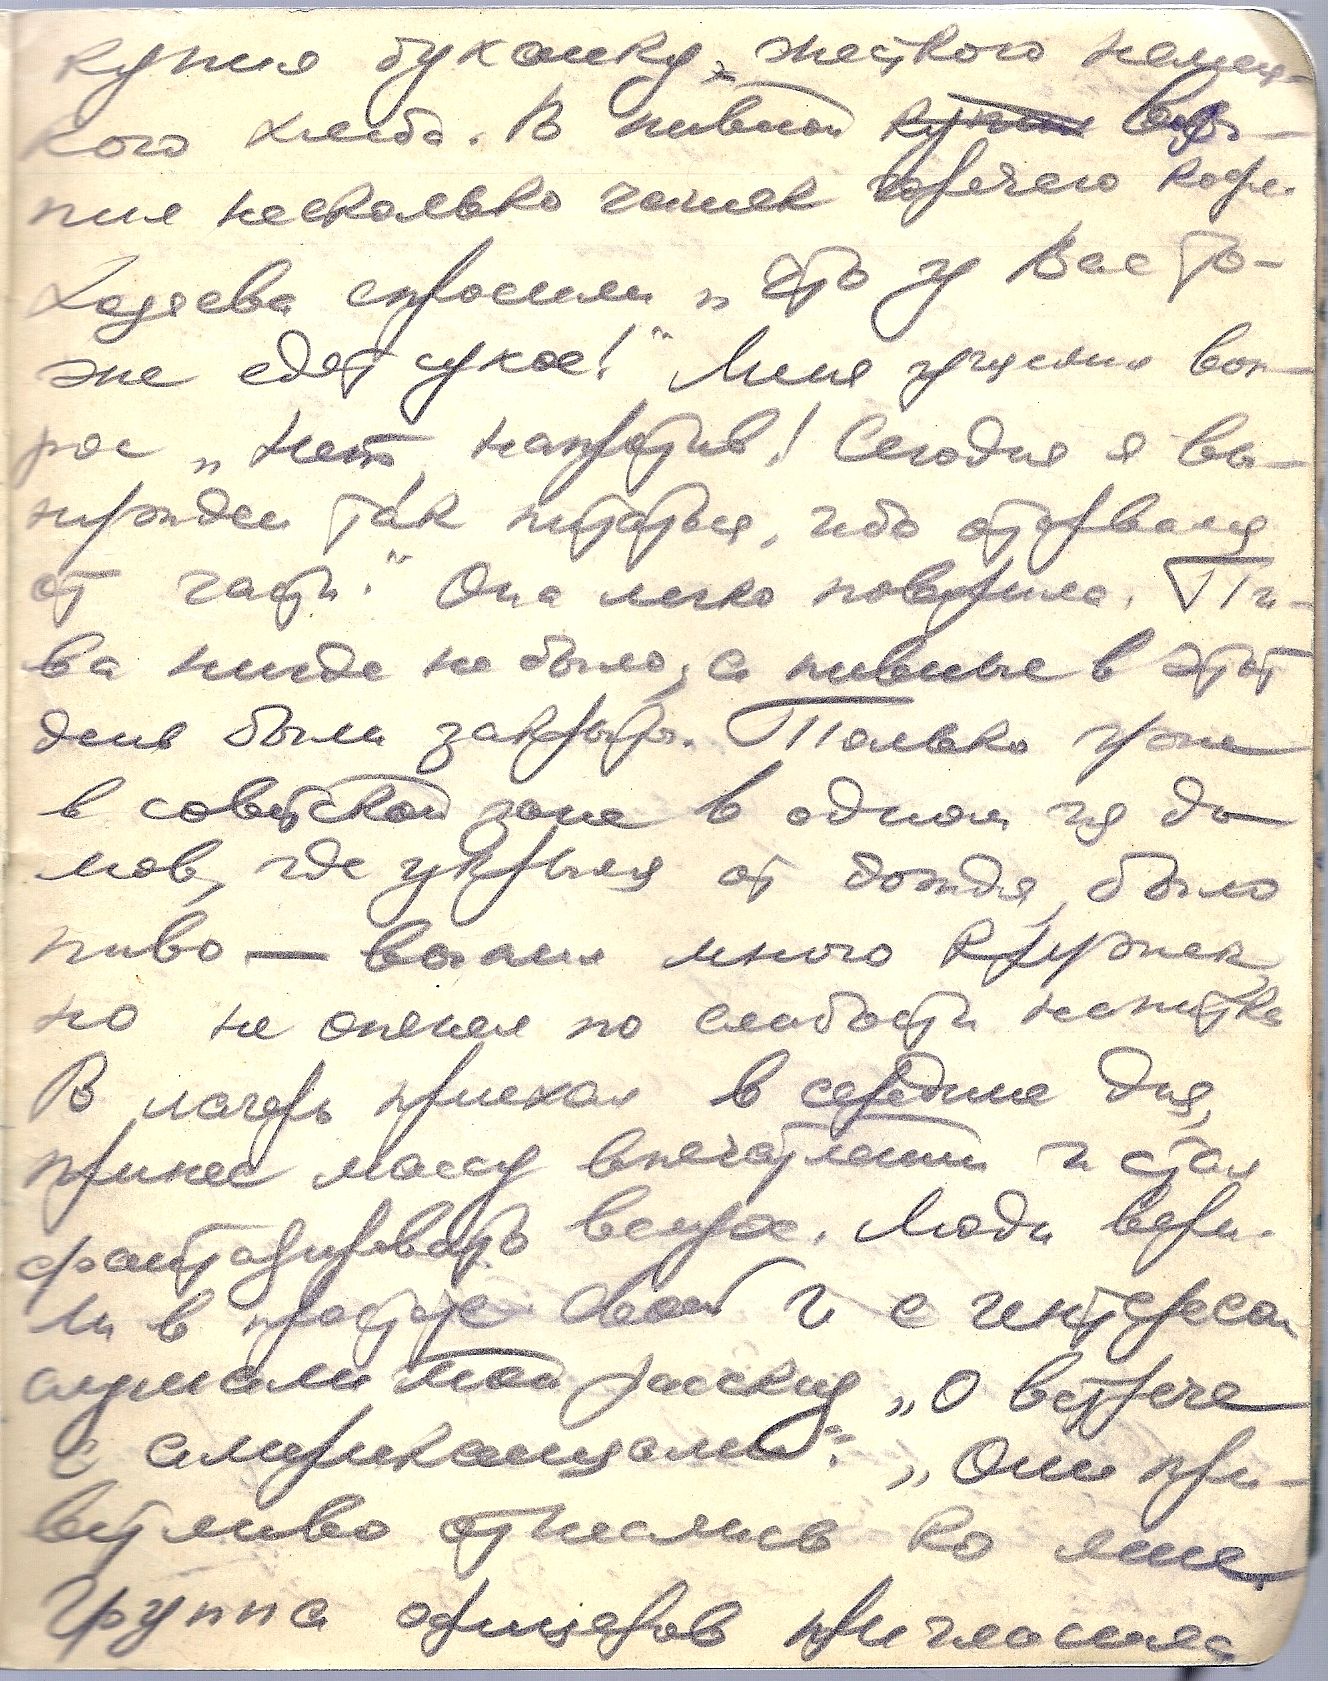 купил буханку жесткого немец-
кого хлеба. В пивной купил вы-
пил несколько чашек горячего кофе.
Хозяева спросили „Это у Вас то-
же едят сухое!“ Меня учуялил воп-
рос „Нет, напротив! Сегодня я вы-
нужден так питаться, ибо оторвался
от части.“ Она легко поверила. Пи-
ва нигде не было, а пивные в этот
день были закрыты. Только уже
в советской зоне в одном из до-
мов, где укрылся от дождя, было
пиво — выпил много кружек,
но не опьянел по слабости напитка
В лагерь приехал в середине дня,
принес массу впечатлений и стал
фантазировать вслух. Люди вери-
ли в простоте своей и с интересом
слушали мой рассказ „О встрече
с американцами“: „Они при-
ветливо отнеслись ко мне.
Группа офицеров пригласила